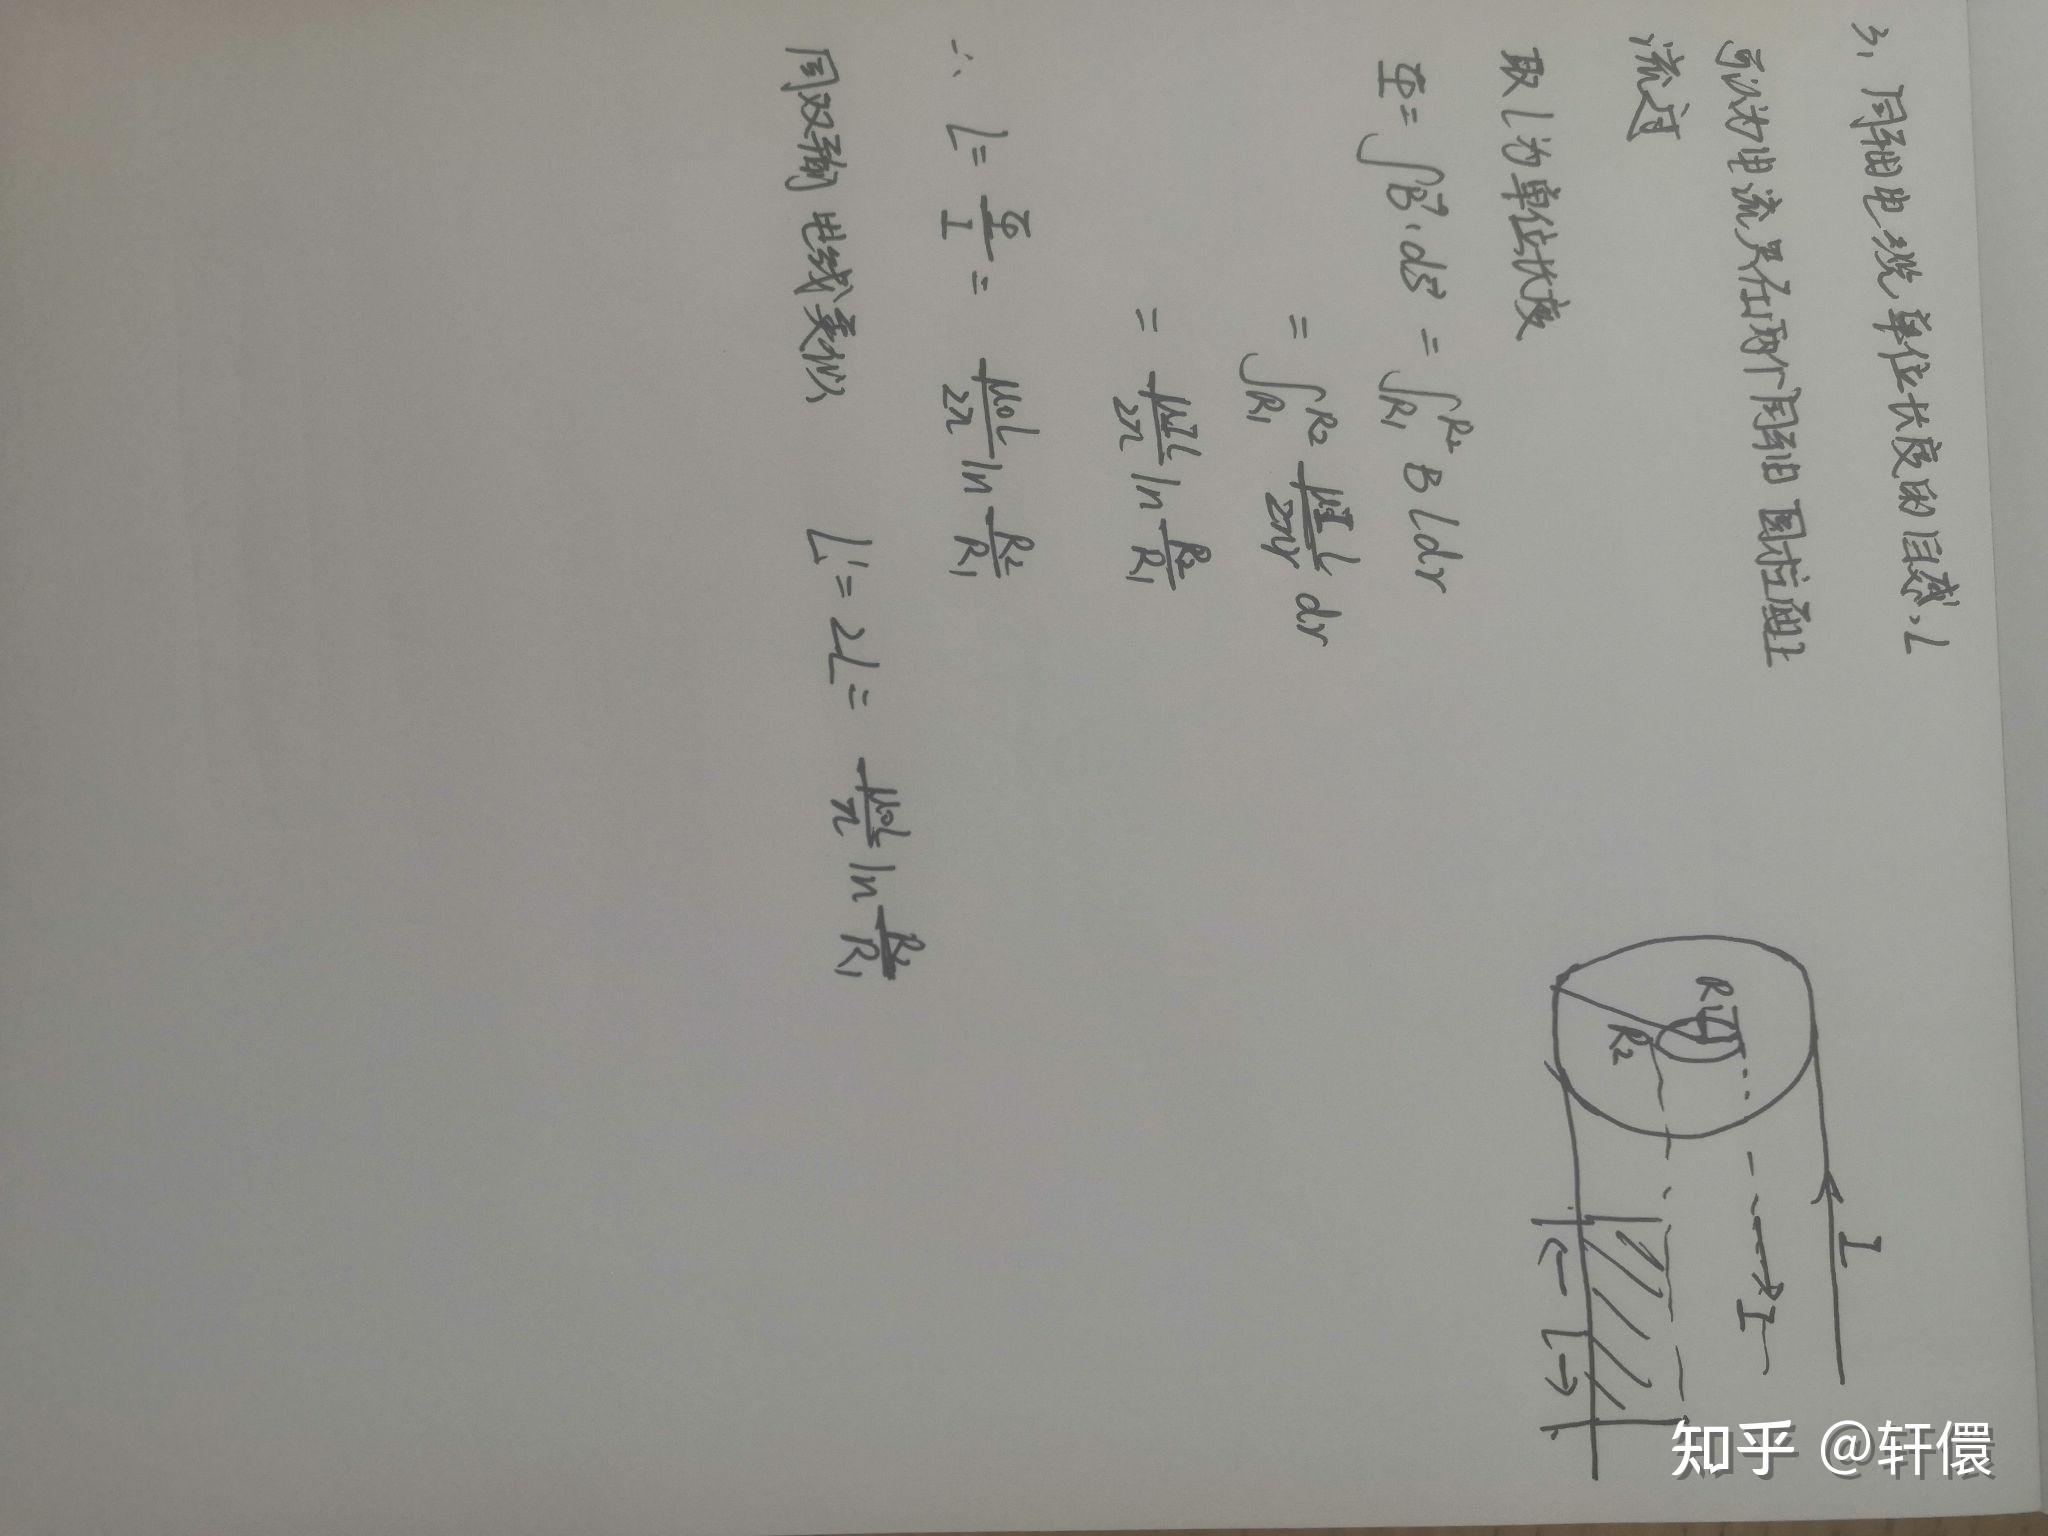 3、同轴电缆单位长度的自感L
可认为电流只在两个同轴圆柱面上
流过
取l为单位长度
Φ=∫B⃗·dS⃗ = ∫_{R1}^{R2} B l dr
= ∫_{R1}^{R2} \frac{μI l}{2πr} dr
= \frac{μI l}{2π} ln \frac{R2}{R1}
∴ L= \frac{Φ}{I} = \frac{μ0 l}{2π} ln \frac{R2}{R1}
同双输电线类似 L'=2L= \frac{μ0 l}{π} ln \frac{R2}{R1}
I
I
R1
R2
l
知乎 @轩儇